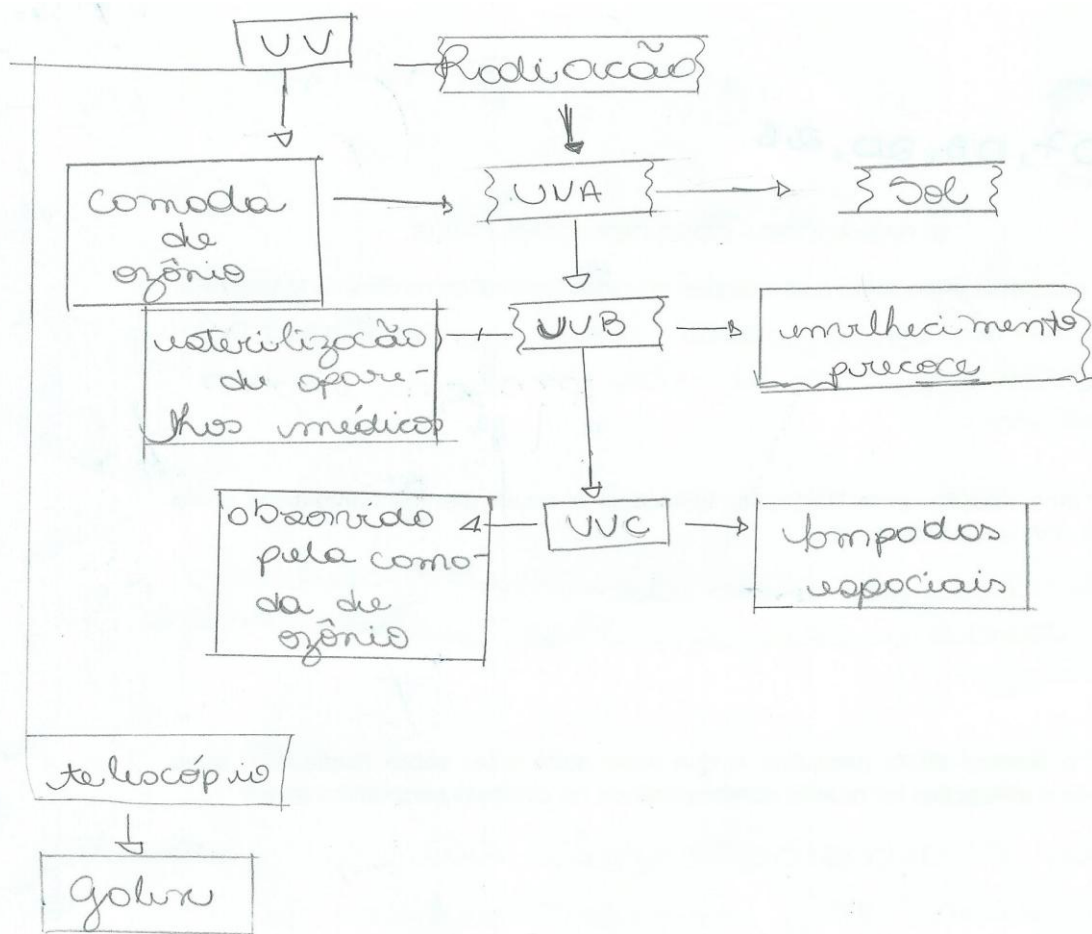 UV
Radiação
camada
de
ozônio
UVA
Sol
esterilização
de apare-
lhos médicos
UVB
envelhecimento
precoce
absorvido
pela cama-
da de
ozônio
UVC
lampadas
espaciais
telescópio
Galex